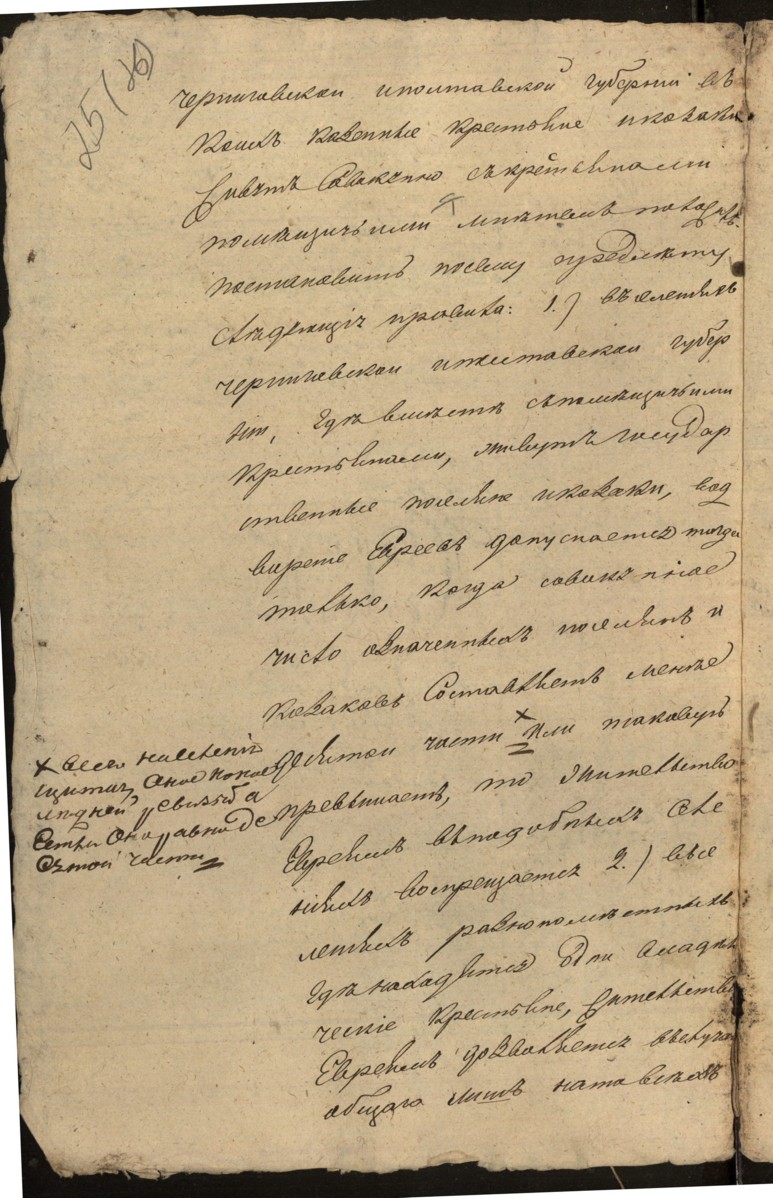 черниговской иполтавской губерний въ
коихъ казенные крестьяне иказаки
живутъ совокупно съкрестьянами
помѣщичьими
постановить посему предмету
слѣдующія правила: 1.) въселеніяхъ
черниговской иполтавской губер
ніи, гдѣ вмѣстѣ съпомѣщичьими
крестьянами, живутъ государ
ственные поселяне иказаки, вод
вореніе Евреевъ допускается тогда
только, когда совокупное
число означенныхъ поселянъ и
казаковъ составляетъ менѣе
десятой части х или таковую
превышаетъ, то жительство
Евреямъ въподобныхъ селе
ніяхъ воспрещается 2.) въсе
леніяхъ разнопомѣстныхъ
гдѣ находятся
ческіе крестьяне, жительство
Евреямъ дозволяется
общаго
х всего населенія
считая оное
людей
если оно равно де
сятой части